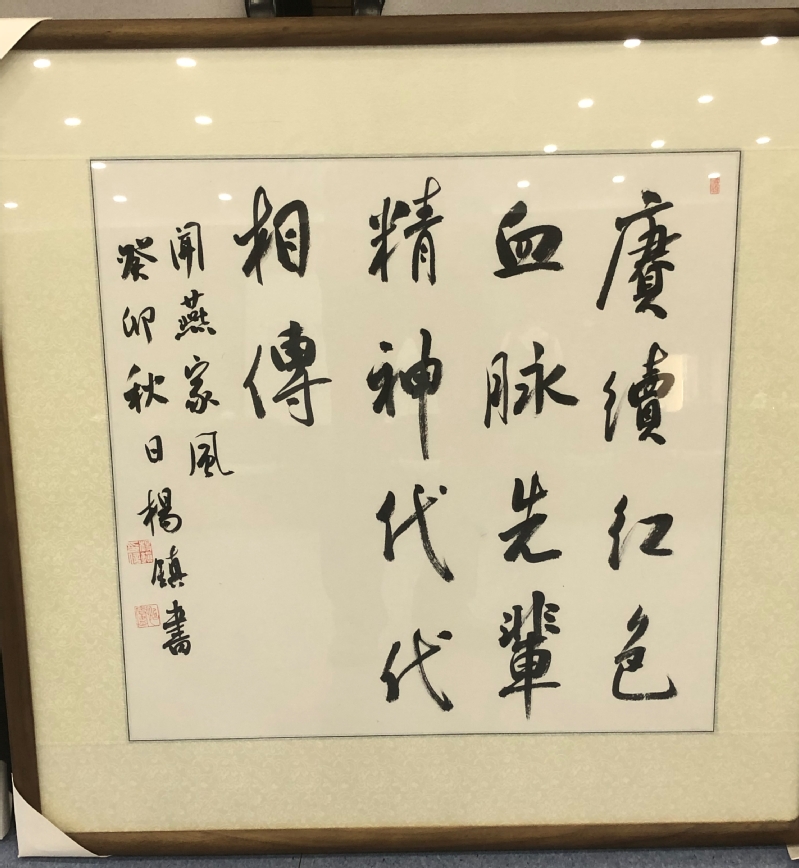 賡續红色
血脉先輩
精神代代
相傳
闻燕家風
癸卯秋日楊鎮書